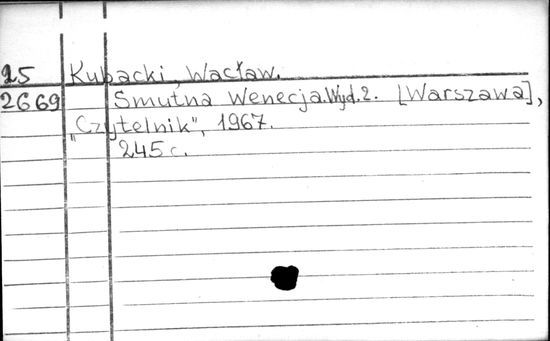 25 Kubacki, Wacław.
2669 Smutna Wenecja. Wyd. 2. [Warszawa],
"Czytelnik", 1967.
245 c.